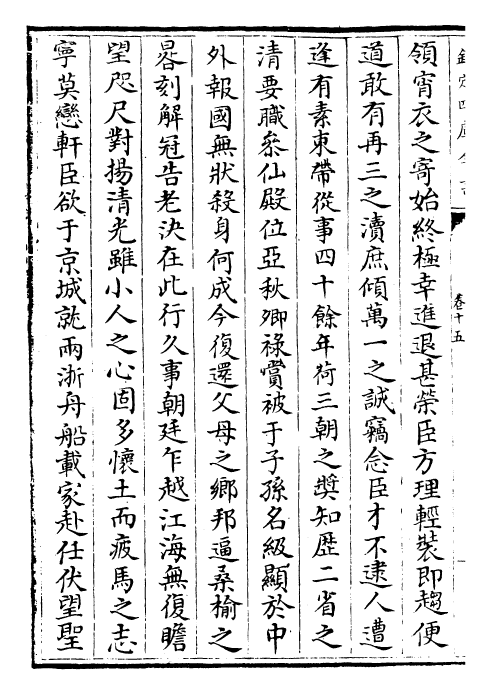 欽定四庫全書
卷十五
領宵衣之寄始終極幸進退甚榮臣方理輕裝即趨便
道敢有再三之瀆庶傾萬一之誠竊念臣才不逮人遭
逢有素束帶從事四十餘年荷三朝之奬知歷二省之
清要職叅仙殿位亞秋卿祿賞被于子孫名級顯於中
外報國無狀殺身何成今復還父母之鄉邦逼桑榆之
晷刻解冠告老決在此行久事朝廷乍越江海無復瞻
望咫尺對揚清光雖小人之心固多懷土而疲馬之志
寧莫戀軒臣欲于京城就兩浙舟船載家赴任伏望聖